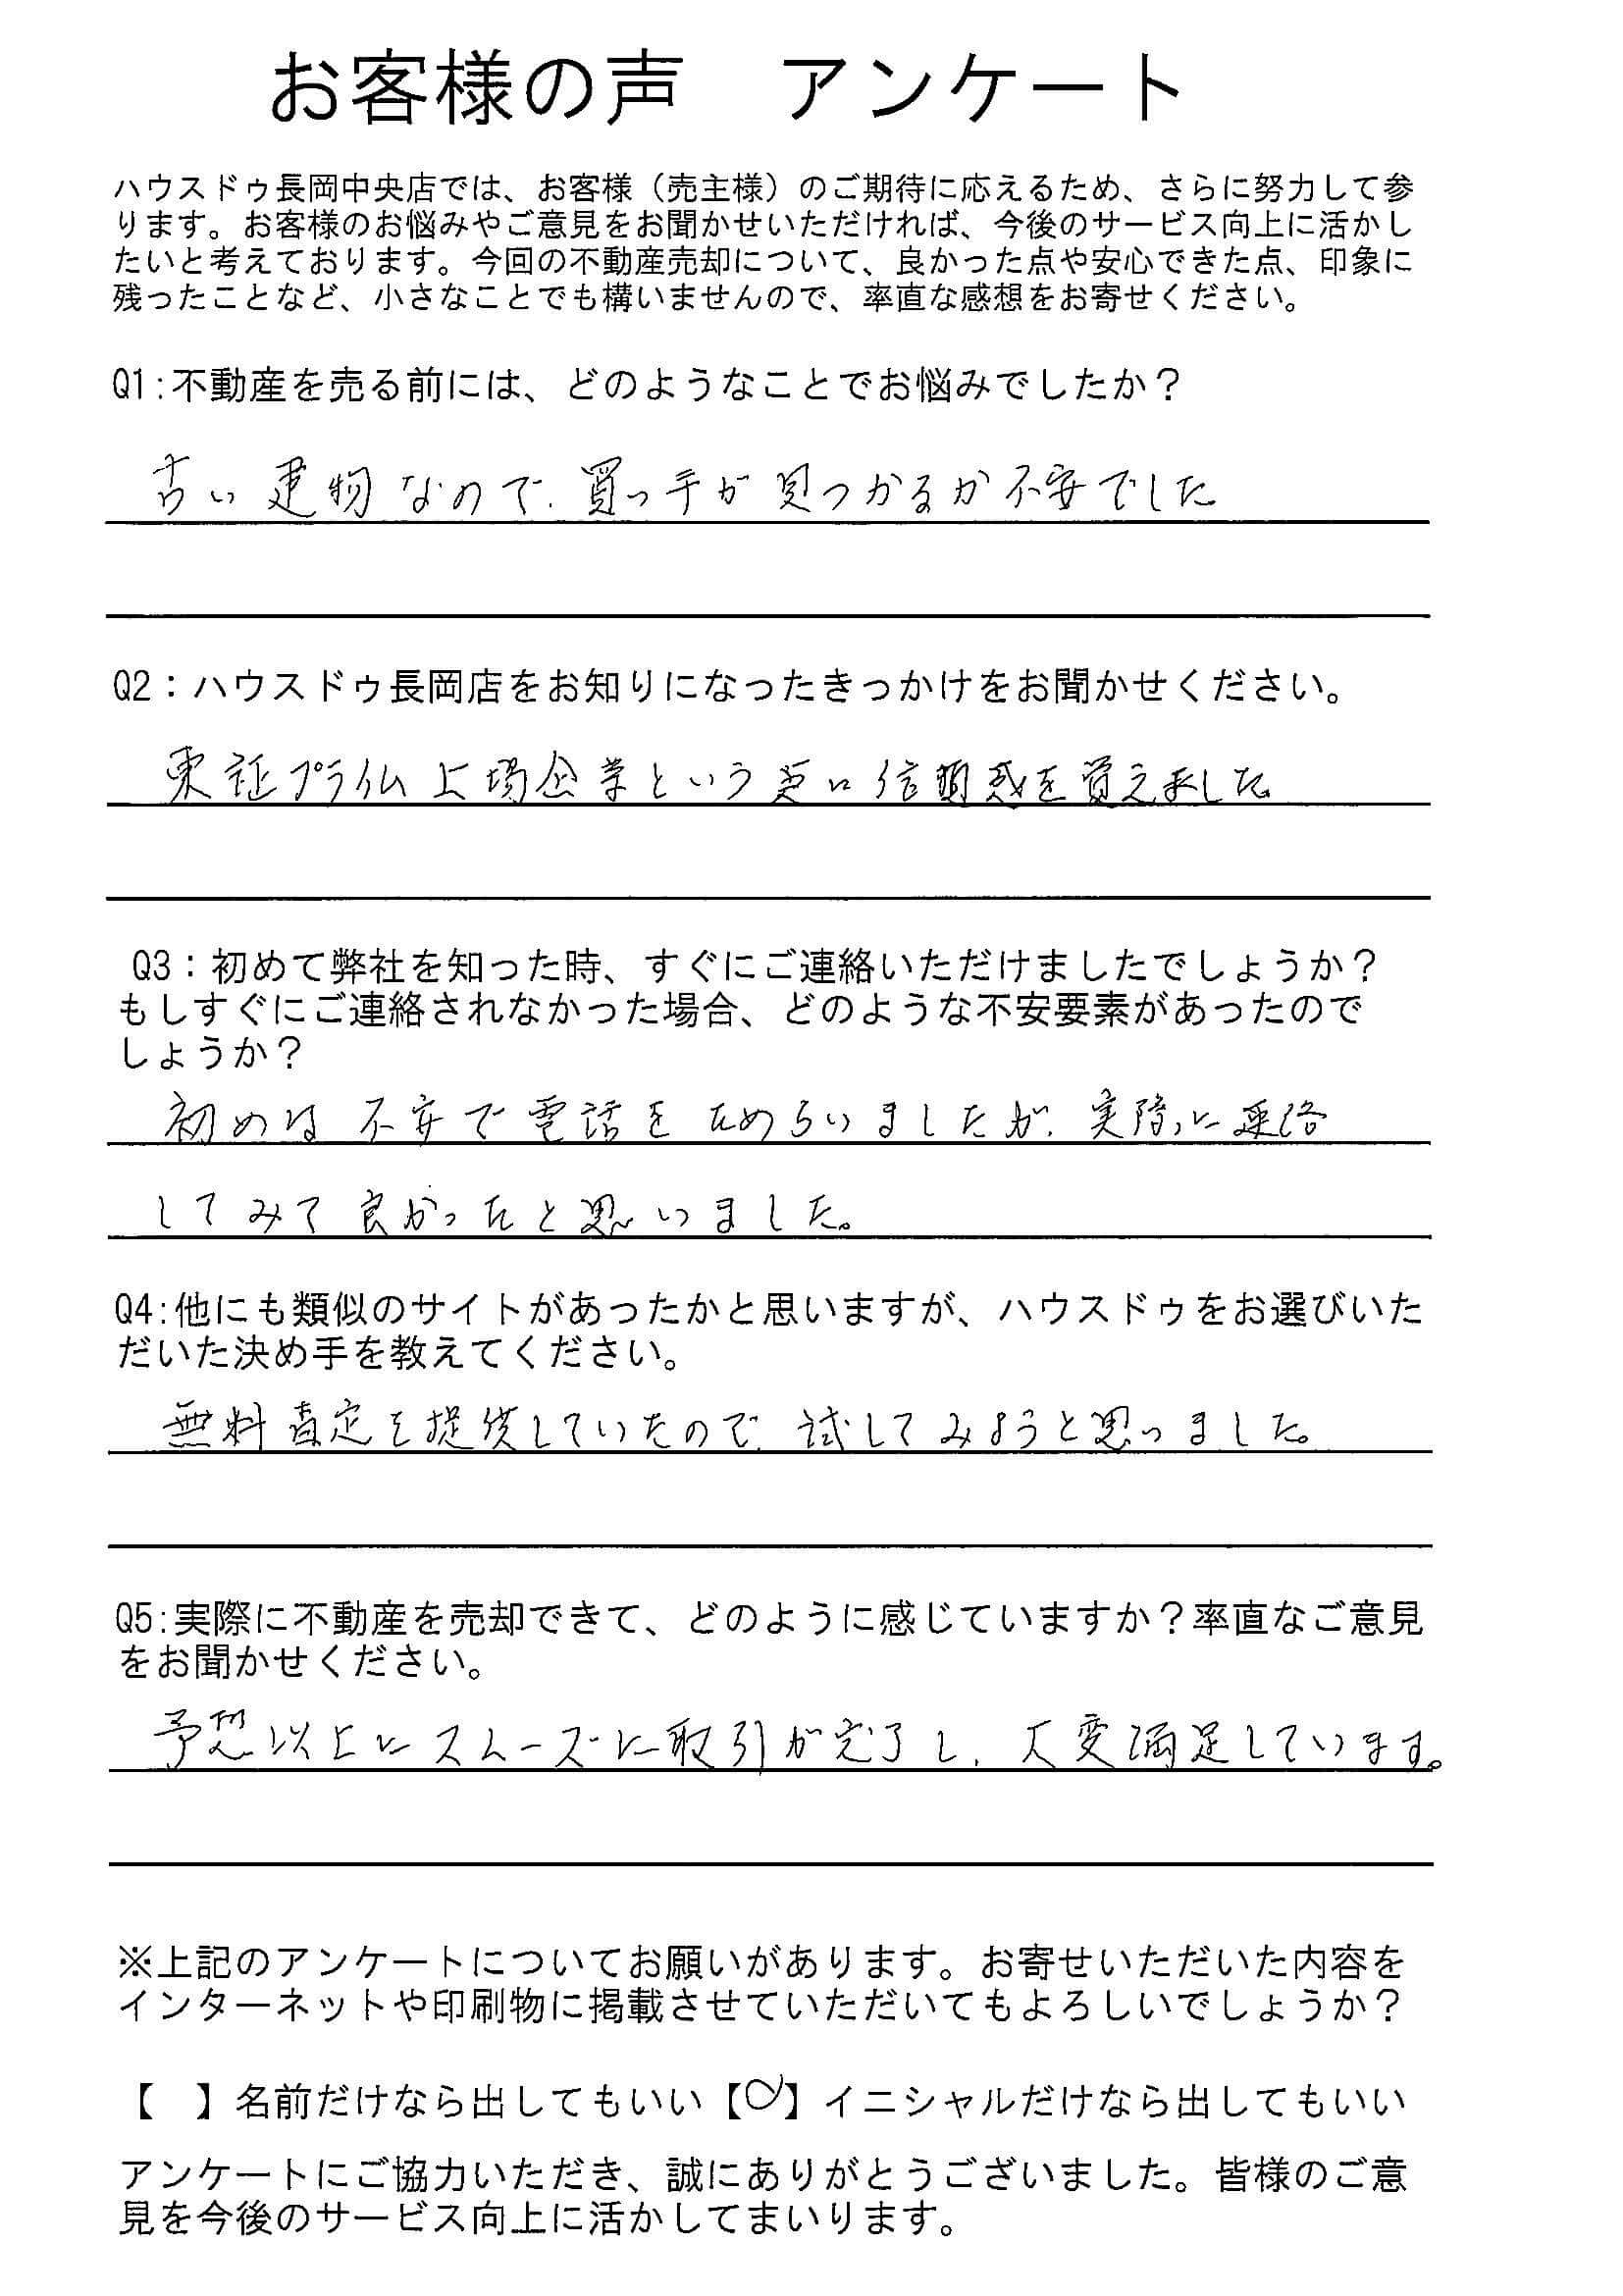 お客様の声　アンケート
ハウスドゥ長岡中央店では、お客様（売主様）のご期待に応えるため、さらに努力して参
ります。お客様のお悩みやご意見をお聞かせいただければ、今後のサービス向上に活かし
たいと考えております。今回の不動産売却について、良かった点や安心できた点、印象に
残ったことなど、小さなことでも構いませんので、率直な感想をお寄せください。
Q1:不動産を売る前には、どのようなことでお悩みでしたか？
古い建物なので、買っ手が見つかるか不安でした
Q2：ハウスドゥ長岡店をお知りになったきっかけをお聞かせください。
東証プライム上場企業という点に信頼感を覚えました。
Q3：初めて弊社を知った時、すぐにご連絡いただけましたでしょうか？
もしすぐにご連絡されなかった場合、どのような不安要素があったので
しょうか？
初めは不安で電話をためらいましたが、実際に連絡
してみて良かったと思いました。
Q4:他にも類似のサイトがあったかと思いますが、ハウスドゥをお選びいた
だいた決め手を教えてください。
無料査定を提供していたので、試してみようと思っました。
Q5:実際に不動産を売却できて、どのように感じていますか？率直なご意見
をお聞かせください。
予想以上にスムーズに取引が完了し、大変満足しています。
※上記のアンケートについてお願いがあります。お寄せいただいた内容を
インターネットや印刷物に掲載させていただいてもよろしいでしょうか？
【　】名前だけなら出してもいい【○】イニシャルだけなら出してもいい
アンケートにご協力いただき、誠にありがとうございました。皆様のご意
見を今後のサービス向上に活かしてまいります。